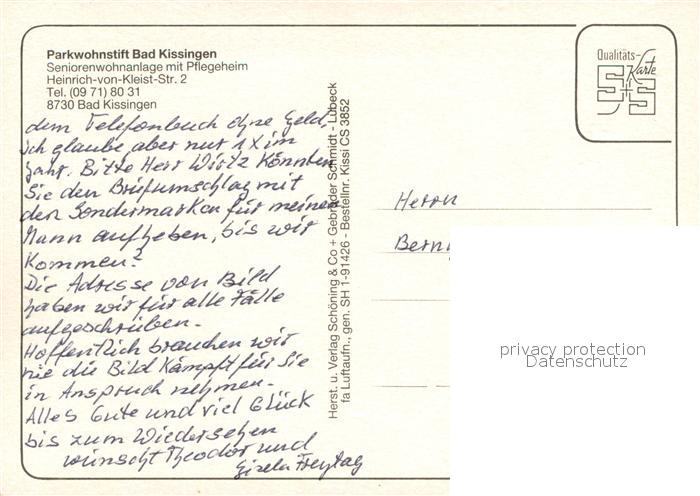 Parkwohnstift Bad Kissingen
Seniorenwohnanlage mit Pflegeheim
Heinrich-von-Kleist-Str. 2
Tel. (09 71) 80 31
8730 Bad Kissingen
dem Telefonbuch ohne Geld,
ich glaube aber nur 1 x im
Jahr. Bitte Herr Wirtz könnten
Sie den Briefumschlag mit
den Sondermarken für meinen
Mann aufheben, bis wir
kommen?
Die Adresse von Bild
haben wir für alle Fälle
aufgeschrieben.
Hoffentlich brauchen wir
nie die Bild kämpft für Sie
in Anspruch nehmen.
Alles Gute und viel Glück
bis zum Wiedersehen
wünscht Theodor und
Gisela Freytag
Herst. u. Verlag Schöning & Co + Gebrüder Schmidt - Lübeck
fa Luftaufn., gen. SH 1-91426 - Bestellnr. Kissi CS 3852
Qualitäts-
Karte
S+S
Herrn
privacy protection
Datenschutz